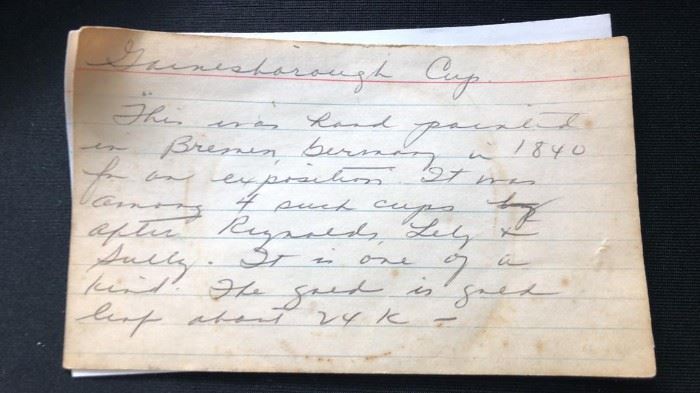 Gainesborough Cup.
"This was hand painted
in Bremen, Germany in 1840
for an exposition. It was
among 4 such cups by
after Reynolds, Lely &
Sully. It is one of a
kind. The gold is gold
leaf about 24 K –